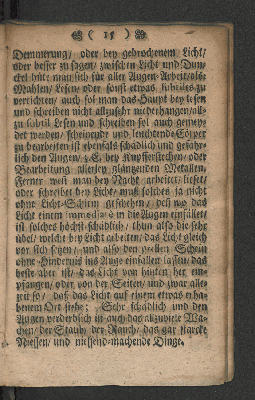 ( 15 )
Demmerung/ oder bey gebrochenem Licht/
oder besser zu sagen/ zwischen Licht und Dun-
ckel hüte man sich für aller Augen-Arbeit/ als
Mahlen/ Lesen/ oder sonst etwas subtiles zu
verrichten/ auch sol man das Haupt bey lesen
und schreiben nicht allzusehr niederhangen/ all-
zu subtil Lesen und schreiben sol auch gemey-
det werden/ scheinende und leuchtende Cörper
zu bearbeiten ist ebenfals schädlich und gefähr-
lich den Augen/ z. E. bey Kupfferstechen/ oder
Bearbeitung allerley gläntzenden Metallen.
Ferner weñ man bey Nacht arbeitet/ lieset/
oder schreibet bey Licht/ muß solches ja nicht
ohne Licht-Schirm geschehen/ deñ wo das
Licht einem immediatè in die Augen einfället/
ist solches höchst-schädlich/ thun also die sehr
übel/ welche bey Licht arbeiten/ das Licht gleich
vor sich setzen/ und also den Schein
ohne Hindernis ins Auge einfallen lassen/ das
beste aber ist/ das Licht von hinten her em-
pfangen/ oder von der Seiten/ und zwar alle-
zeit so/ daß das Licht auf einem etwas erha-
benem Ort stehe; Sehr schädlich und den
Augen verderblich ist auch das allzuviele Wa-
chen/ der Staub/ der Rauch/ das gar starcke
Niessen/ und niessend-machende Dinge.